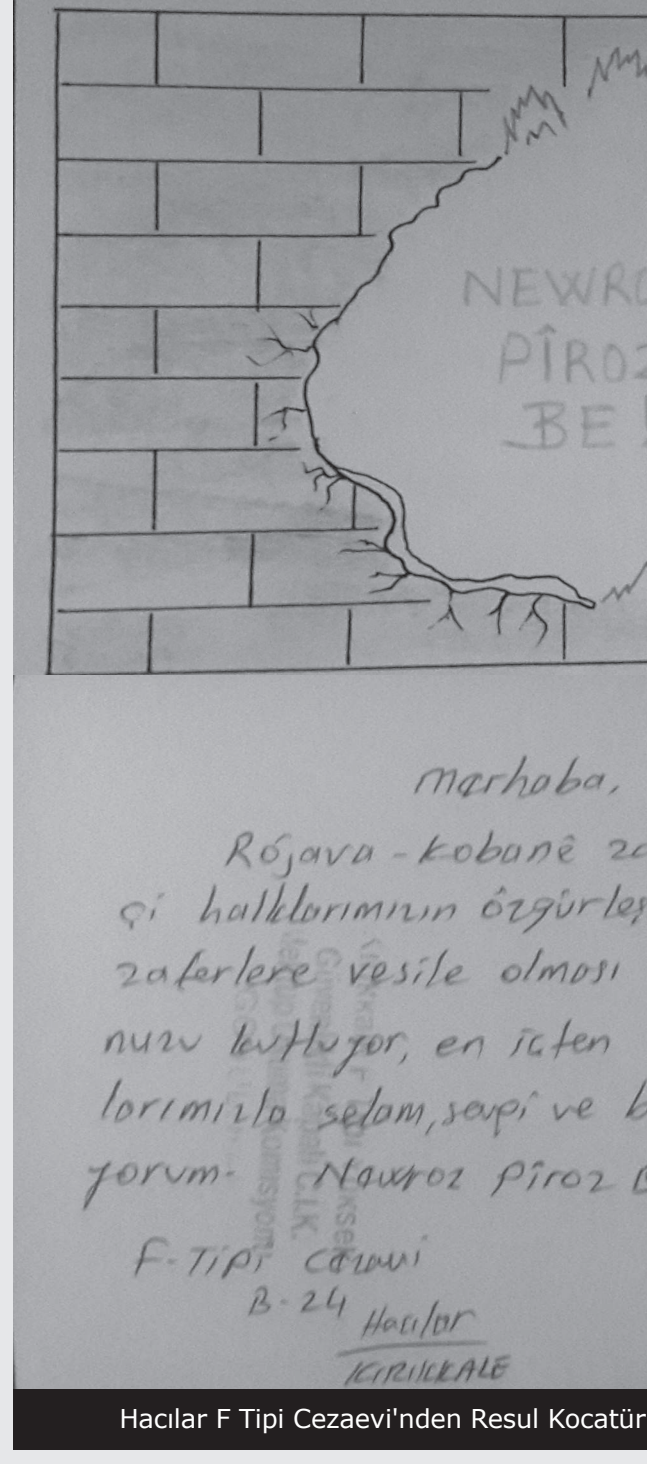 NEWRO
PÎROZ
BE!
Merhaba,
Rójava - Kobanê za
çi halklarımızın özgürleş
zaferlere vesile olması
nuzu kutluyor, en içten
larımızla selam, sevgi ve b
yorum. Newroz Pîroz B
F-Tipi Cezaevi
B-24
Hacılar
KIRIKKALE
Hacılar F Tipi Cezaevi'nden Resul Kocatür